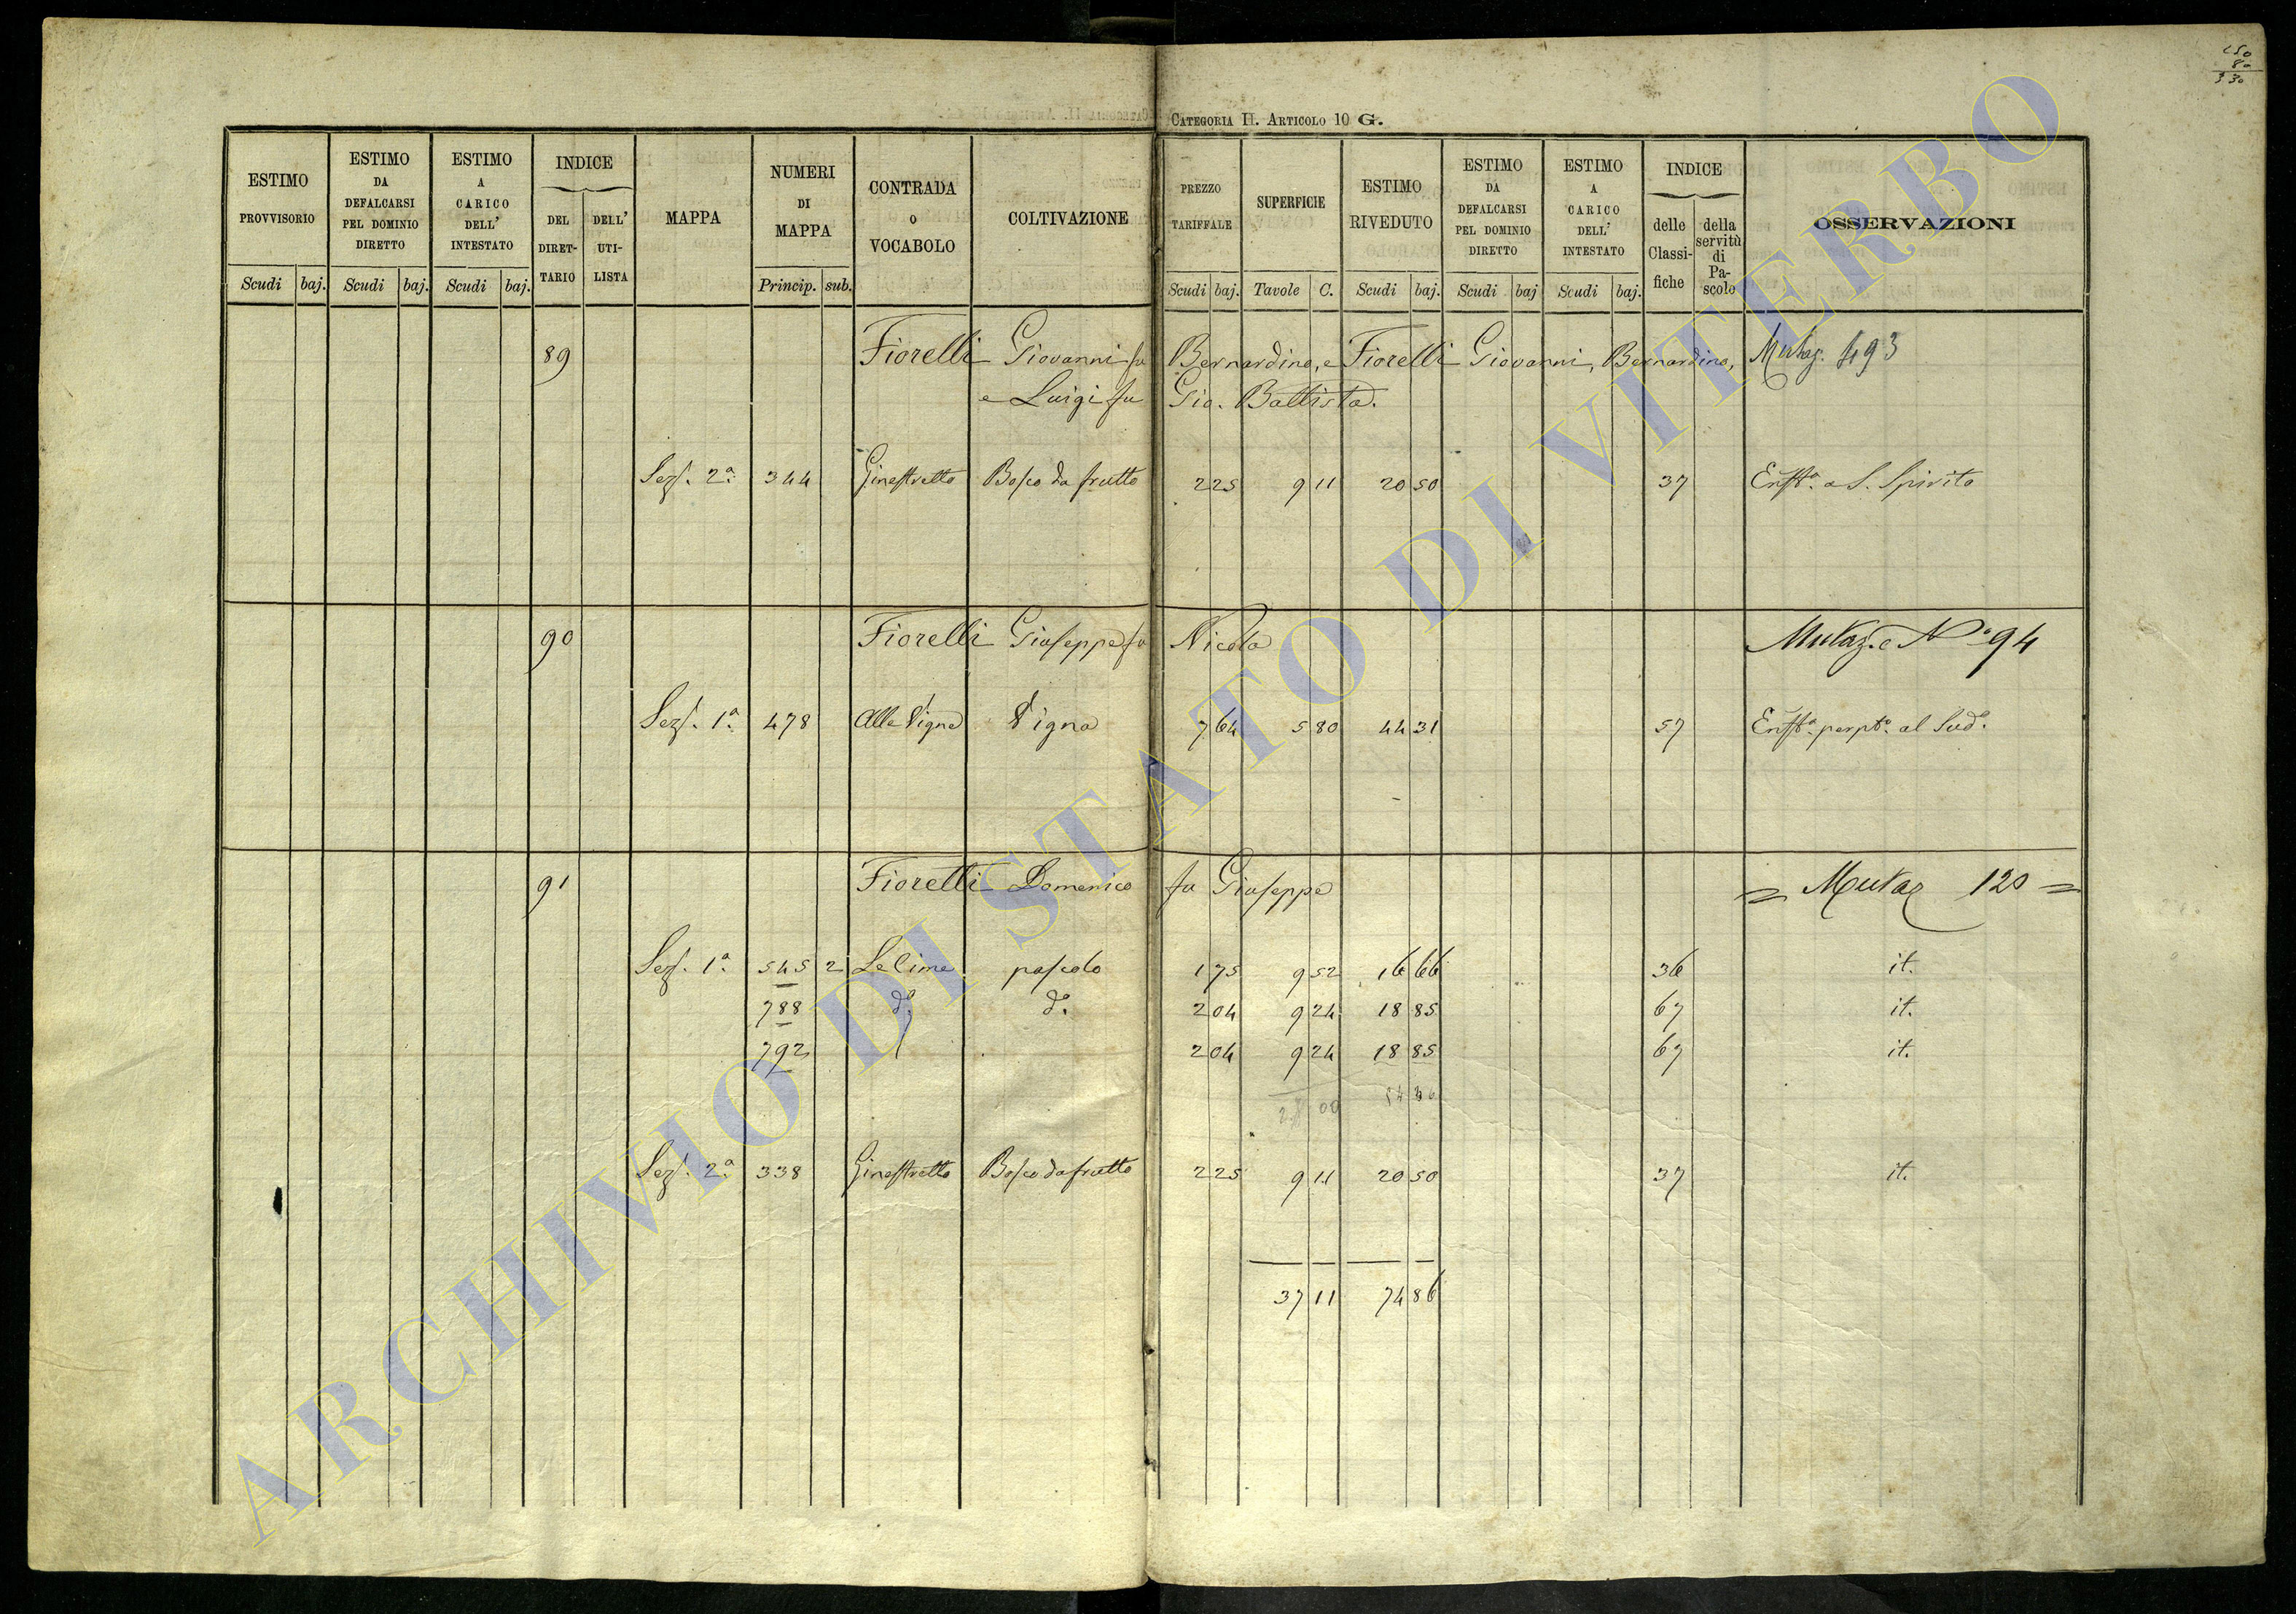 250
80
330
CATEGORIA II. ARTICOLO 10 G.
ESTIMO PROVVISORIO Scudi baj.
ESTIMO DA DEFALCARSI PEL DOMINIO DIRETTO Scudi baj.
ESTIMO A CARICO DELL' INTESTATO Scudi baj.
INDICE DEL DIRET-TARIO DELL' UTI-LISTA
MAPPA
NUMERI DI MAPPA Princip. sub.
CONTRADA O VOCABOLO
COLTIVAZIONE
PREZZO TARIFFALE Scudi baj.
SUPERFICIE Tavole C.
ESTIMO RIVEDUTO Scudi baj.
ESTIMO DA DEFALCARSI PEL DOMINIO DIRETTO Scudi baj
ESTIMO A CARICO DELL' INTESTATO Scudi baj.
INDICE delle Classi-fiche della servitù di Pa-scolo
OSSERVAZIONI
89 Fiorelli Giovanni fu Bernardino, e Fiorelli Giovanni, Bernardino, Mutaz. 93
e Luigi fu Gio. Battista.
Sez. 2a. 344 Ginestretto Bosco da frutto 2 25 9 11 20 50 37 Enfta. a S. Spirito
90 Fiorelli Giuseppe fu Nicola Mutaz.e No 94
Sez. 1a. 478 Alle Vigne Vigna 7 64 5 80 44 31 57 Enfta. perpta. al Sudo.
91 Fiorelli Domenico fu Giuseppe = Mutaz 120 =
Sez. 1a. 545 2 Le Cime pascolo 1 75 9 52 16 66 36 it.
788 do. do. 2 04 9 24 18 85 67 it.
792 2 04 9 24 18 85 67 it.
28 00 54 36
Sez. 2a. 338 Ginestretto Bosco da frutto 2 25 9 11 20 50 37 it.
37 11 74 86
ARCHIVIO DI STATO DI VITERBO